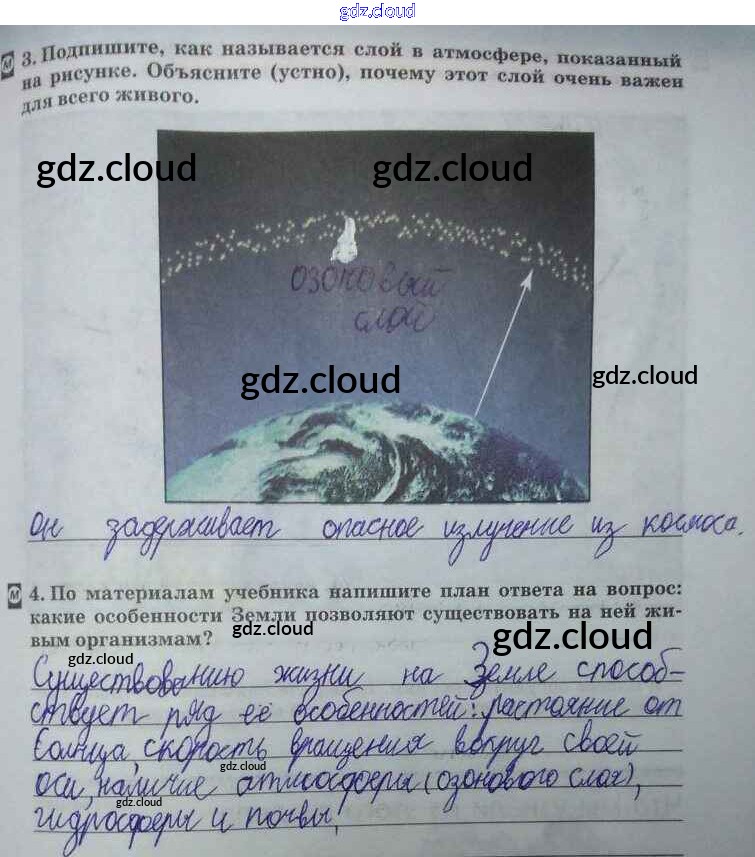 gdz.cloud
3. Подпишите, как называется слой в атмосфере, показанный
на рисунке. Объясните (устно), почему этот слой очень важен
для всего живого.
gdz.cloud gdz.cloud
озоновый
слой
gdz.cloud gdz.cloud
Он задерживает опасное излучение из космоса.
4. По материалам учебника напишите план ответа на вопрос:
какие особенности Земли позволяют существовать на ней жи-
вым организмам?
gdz.cloud gdz.cloud
gdz.cloud
Существованию жизни на Земле способ-
ствует ряд её особенностей: растояние от
Солнца, скорость вращения вокруг своей
gdz.cloud
оси, наличие атмосферы (озонового слоя),
gdz.cloud
гидросферы и почвы.